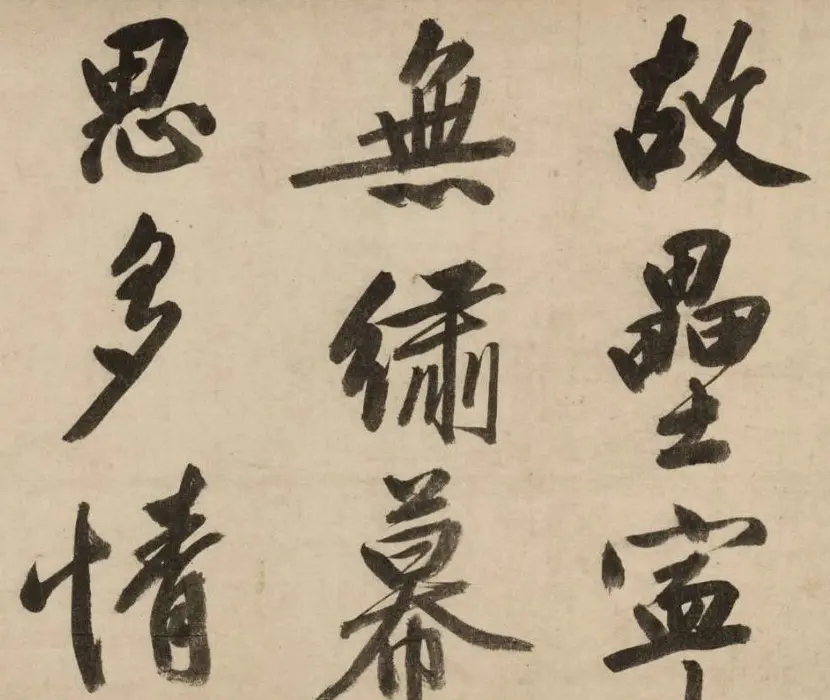 故壘寧
無繡幕
思多情